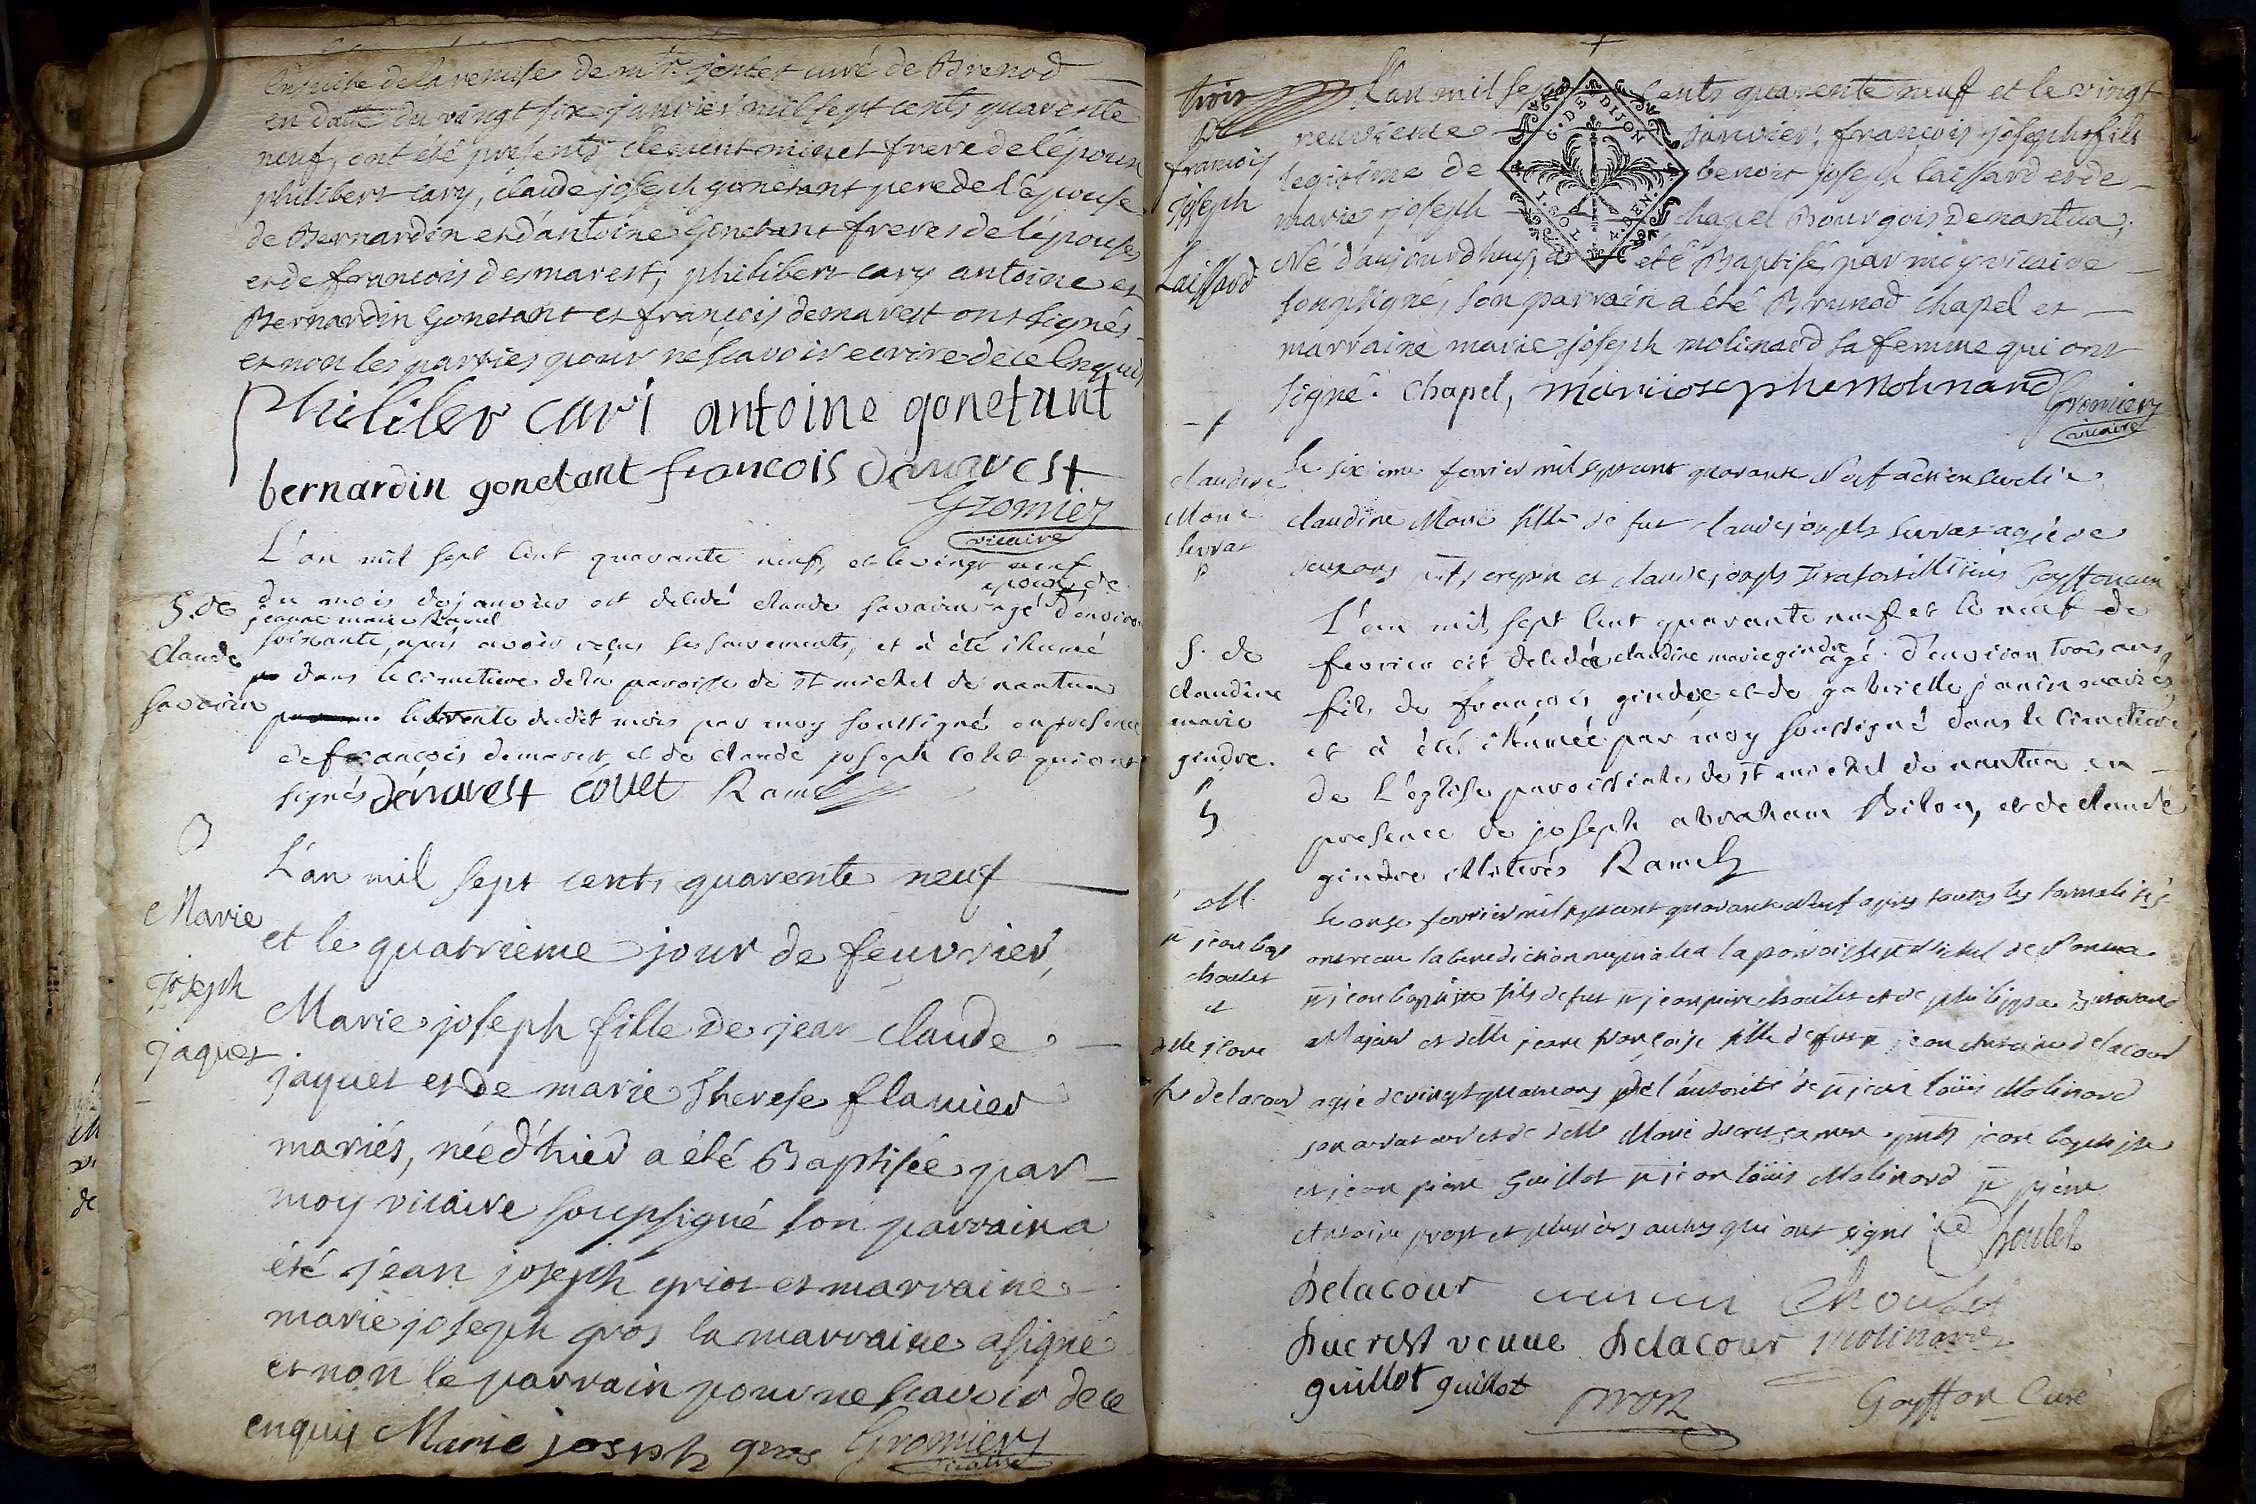 ensuite de la remise de mr. jentet curé de Brenod
en datte du vingt six janvier mil sept cents quarente
neuf, ont été présents clement minet frere de l'époux
philibert cary, claude joseph gonetant pere de l'épouse
de Bernardin et d'antoine Gonetant freres de l'épouse,
et de francois desmarest, philibert cary antoine et
Bernardin Gonetant et francois demarest ont signés
et non les parties pour ne scavoir ecrire de ce enquis
Philiber cari antoine gonetant
bernardin gonetant francois demarest
Gromier
vicaire
L'an mil sept cent quarante neuf, et le vingt neuf
du mois de janvier est decedé claude savarin epoux de
jeanne marie Ramel agé d'environ
soixante, apres avoir reçus ses sacrements, et à été ihumé
dans le cimetiere de la paroisse de st michel de nantua
le trente dudit mois par moy soussigné en presence
de francois demarest, et de claude joseph colet qui ont
signés demarest colet Ramel
S. de
Claude
savarin
B
Marie
joseph
jaquet
L'an mil sept cents quarente neuf
et le quatrieme jour de feuvrier,
Marie joseph fille de jean claude
jaquet et de marie Therese flamier
mariés, née d'hier a été Baptisée par
moy vicaire soupsigné son parrain a
été jean joseph griot et marraine
marie joseph gros la marraine a signé
et non le parrain pour ne scavoir de ce
enquis Marie joseph gros Gromier
vicaire
trois
francois
joseph
Laissard
L'an mil sept cents quarente neuf et le vingt
neuvieme janvier, françois joseph fils
legitime de benoit joseph laissard et de
marie joseph chapel Bourgois de nantua,
Né d'aujourdhuy, a été Baptisé par moy vicaire
soupsigné, son parrain a été Brunod chapel et
marraine marie joseph molinard sa femme qui ont
signé. Chapel, mariiosephe molinard Gromier
vicaire
G. DE DIJON
1. SOL
claudine
Marie
Le sixieme fevrier mil sept cent quarante neuf a été ensevelie
claudine Marie fille de fut claude joseph agée de
S. de
claudine
marie
gindre.
L'an mil sept cent quarante neuf et le neuf de
fevrier est decedée claudine marie gindre agé d'environ trois ans,
fils de françois gindre et de gabrielle janin mariés,
et à été ihumée par moy soussigné dans le cimetiere
de L'eglise paroissiale de st michel de nantua en
presence de joseph abraham Bilon, et de claude
gindre illiterés Ramel
M
Sr jean bap
choulet
et
delle jeane
fr delacour
Le onze fevrier mil sept cent quarante neuf apres toutes les formalités
ont recue la benediction nuptiale a la paroisse st Michel de Nantua
sr jean baptiste fils de fut sr jean pierre choulet et de philippa
et delle jeane françoise fille de fut sr jean antoine delacour
agée de vingt quatre ans de l'autorité de sr jean loüis Molinard
son curateur et de delle Marie ducret sa mere pnts jean baptiste
et jean pierre Guillot sr jean loüis Molinard sr pierre
Antoine prost et plusieurs autres qui ont signé Choulet
Delacour Choulet
Ducrest veuue Delacour Molinard
guillot guillot prost Goyffon Curé